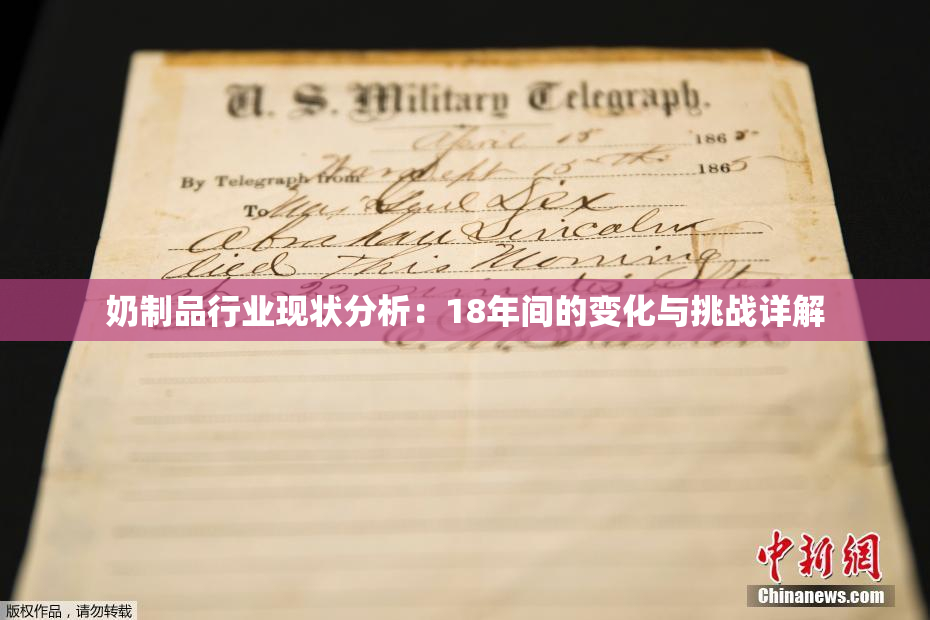 U. S. Military Telegraph.
April 15 1865
By Telegraph from War Dept 15th 1865
To Maj Genl Dix
Abraham Lincoln
died This Morning
at 22 minutes after
奶制品行业现状分析：18年间的变化与挑战详解
E. M. Stanton
中新网
Chinanews.com
版权作品，请勿转载